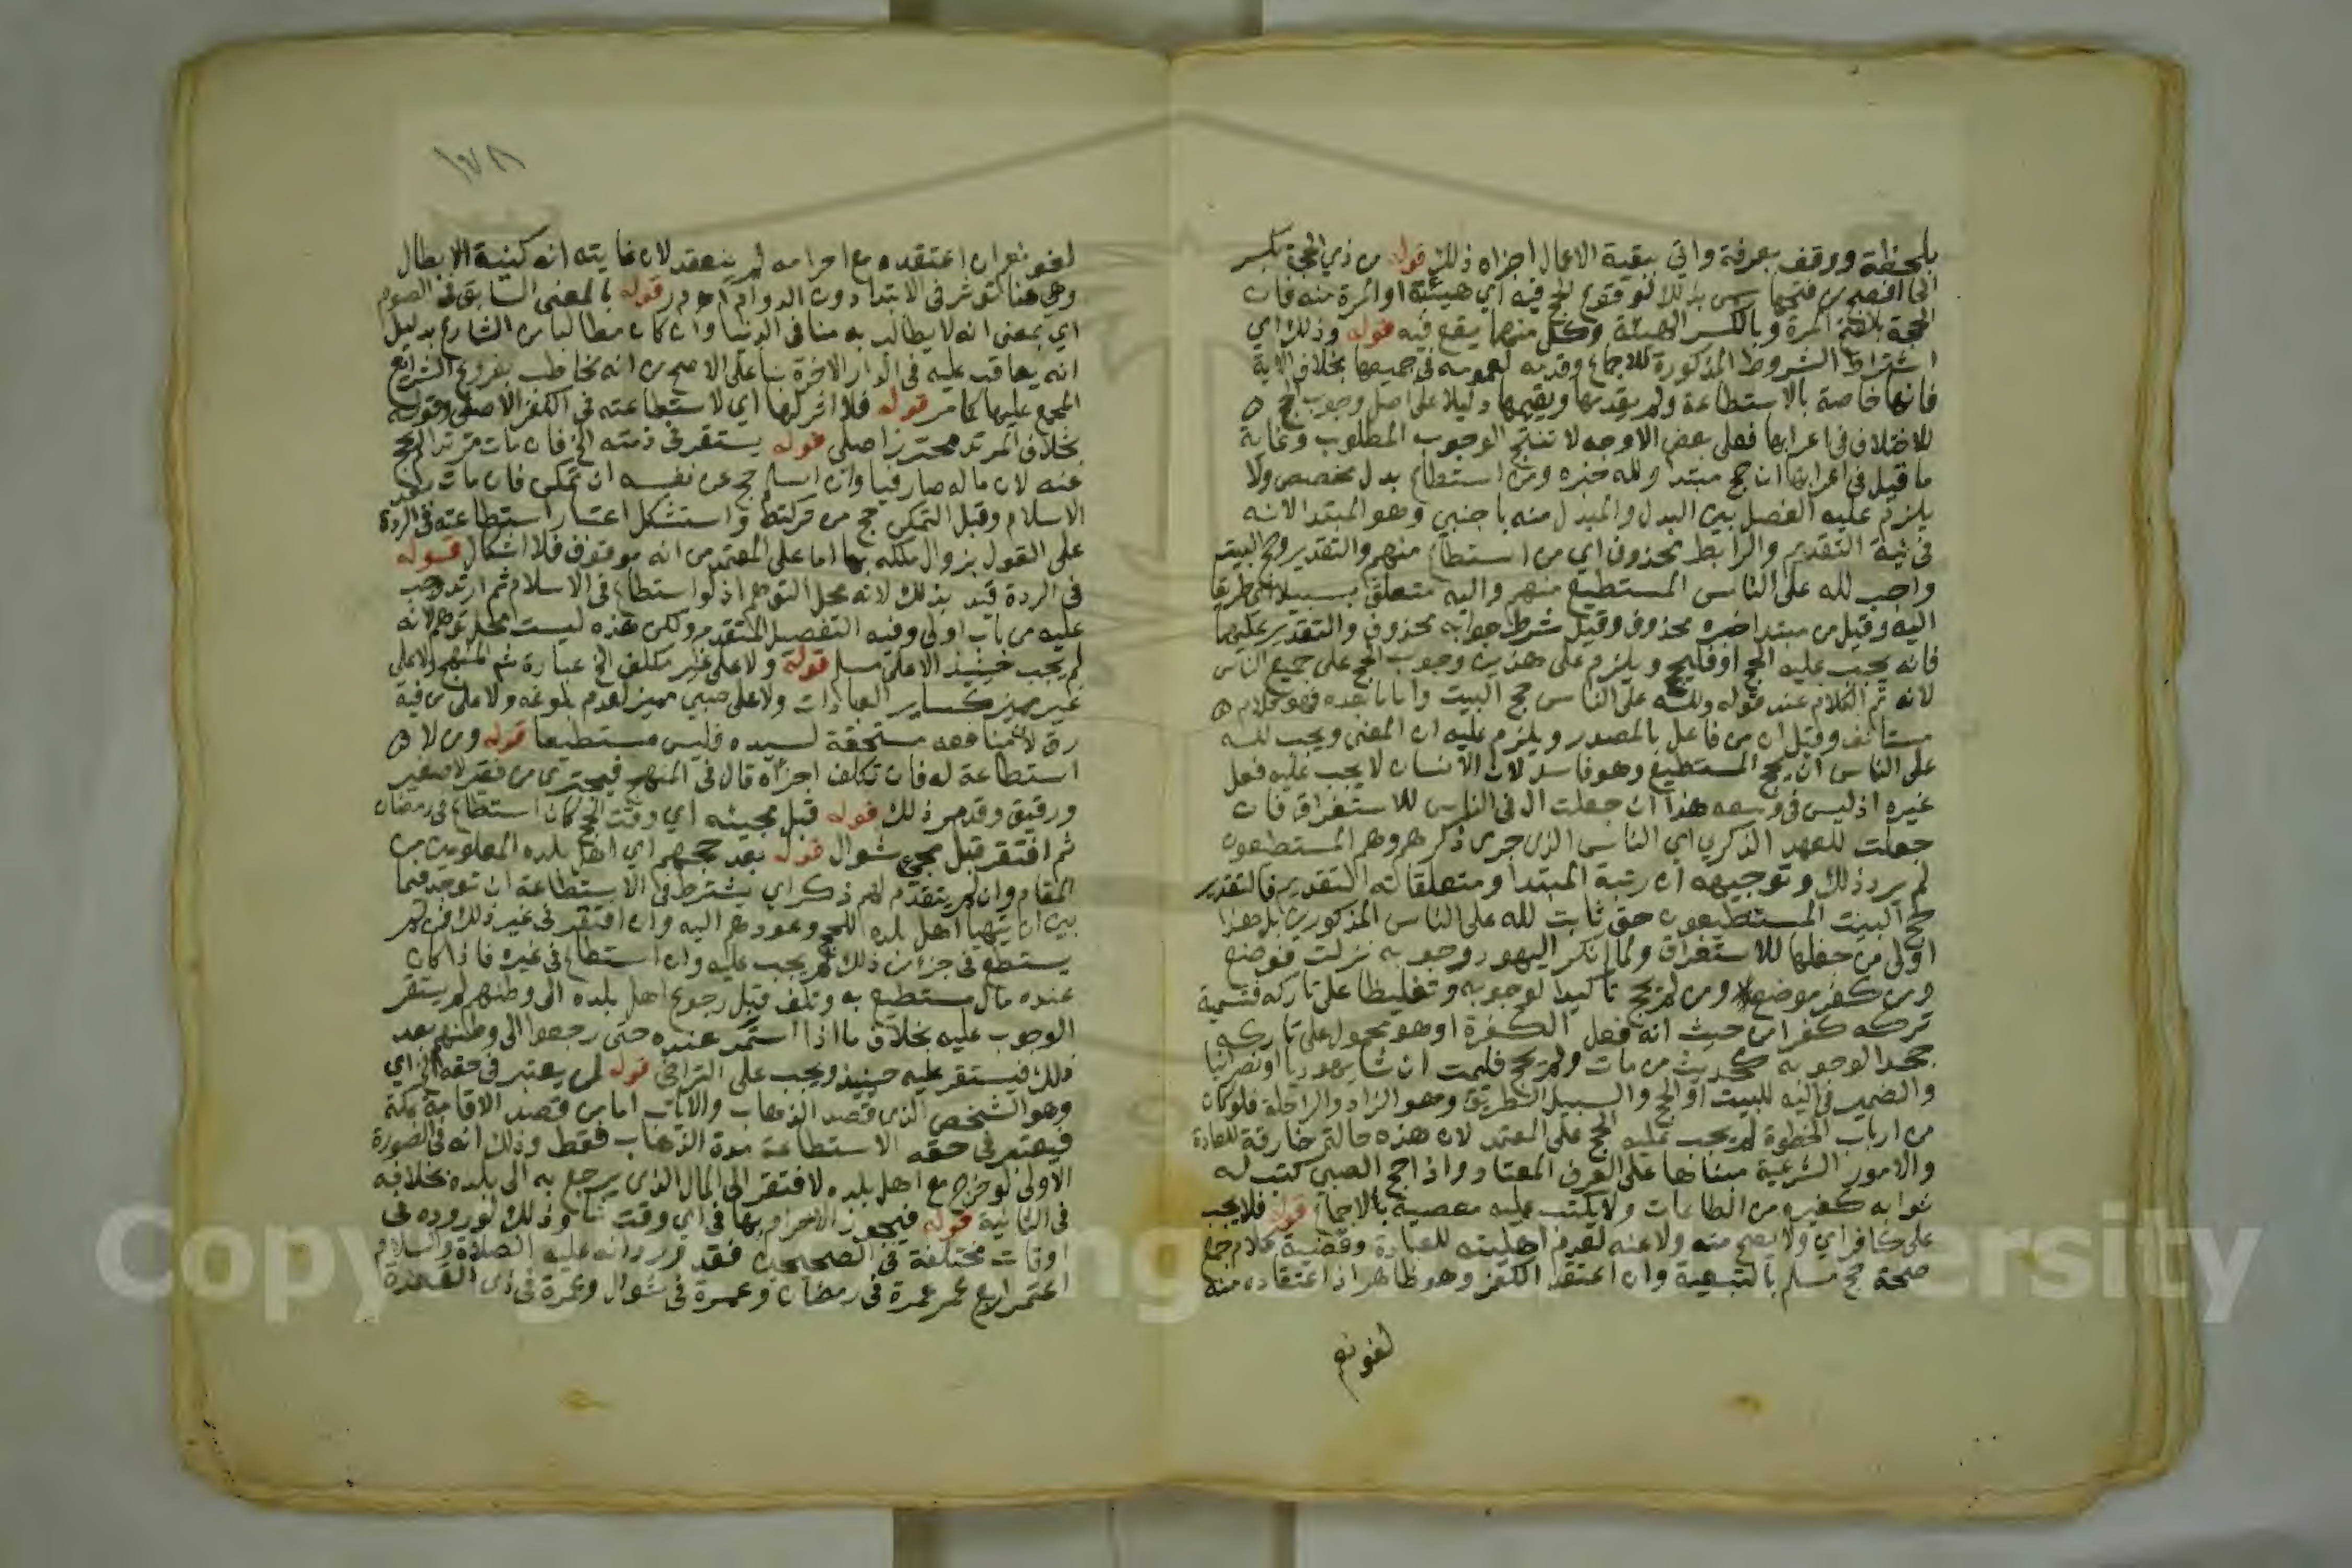 بلحظة ووقف بعرفة واتي ببقية الاعمال اجزاه ذلك قوله من ذي الحجة بكسر
الحا افصح من فتحها سمي بذلك لوقوع الحج فيه اي هيئة او المرة منه فان
الحجة بالفتح المرة وبالكسر الهيئة وكل منهما يقع فيه قوله وذلك اي
اشتراط الشروط المذكورة للاجماع وقدمه لعمومه في جميعها بخلاف الاية
فانها خاصة بالاستطاعة ولم يقدمها ويقيمها دليلا على اصل وجوب الحج
للاختلاف في اعرابها فعلى بعض الاوجه لا تنتج الوجوب المطلوب وغاية
ما قيل في اعرابها ان حج مبتدا ولله خبره ومن استطاع بدل مخصص ولا
يلزم عليه الفصل بين البدل والمبدل منه باجنبي وهو المبتدا لانه
في نية التقديم والرابط محذوف اي من استطاع منهم والتقدير وحج البيت
واجب لله على الناس المستطيع منهم واليه متعلق بسبيلا اي طريقا
اليه وقيل من مبتدا خبره محذوف وقيل شرط جوابه محذوف والتقدير عليهما
فانه يجب عليه الحج او فليحج ويلزم على هذين وجوب الحج على جميع الناس
لانه تم الكلام عند قوله ولله على الناس حج البيت واما ما بعده فهو كلام
مستانف وقيل ان من فاعل بالمصدر ويلزم عليه ان المعنى ويجب لله
على الناس ان يحج المستطيع وهو فاسد لان الانسان لا يجب عليه فعل
غيره اذ ليس في وسعه هذا ان جعلت ال في الناس للاستغراق فان
جعلت للعهد الذكري اي الناس الذي جرى ذكرهم وهم المستطيعون
لم يرد ذلك وتوجيهه ان رتبة المبتدا ومتعلقاته التقديم فالتقدير
حج البيت المستطيعون حق ثابت لله على الناس المذكورين بل هذا
اولى من جعلها للاستغراق ولما انكر اليهود وجوبه نزلت فوضع
ومن كفر موضع ومن لم يحج تاكيدا لوجوبه وتغليظا على تاركه فتسمية
تركه كفرا من حيث انه فعل الكفرة او هو محمول على تاركه
جحدا لوجوبه كحديث من مات ولم يحج فليمت ان شا يهوديا او نصرانيا
والضمير في اليه للبيت او الحج والسبيل الطريق وهو الزاد والراحلة فلو كان
من ارباب الخطوة لم يجب عليه الحج على المعتمد لان هذه حالة خارقة للعادة
والامور الشرعية مبناها على العرف المعتاد واذا حج الصبي كتب له
ثوابه كغيره من الطاعات ولا يكتب عليه معصية بالاجماع قوله فلا يجب
على كافر اي ولا يصح منه ولا عنه لعدم اهليته للعبادة وقضية كلام جمع
صحة حج مسلم بالتبعية وان اعتقد الكفر وهو ظاهر اذ اعتقاده منه
لغو نعم
١٧٨
لغو نعم ان اعتقده مع احرامه لم ينعقد لان غايته انه كنية الابطال
وهي هنا تؤثر في الابتدا دون الدوام قوله بالمعنى السابق في الصوم
اي بمعنى انه لا يطالب به منا في الدنيا وان كان مطالبا من الشارع بدليل
انه يعاقب عليه في الدار الاخرة بنا على الاصح من انه مخاطب بفروع الشرائع
المجمع عليها كما مر قوله فلا اثر لها اي لاستطاعته في الكفر الاصلي وقوله
بخلاف المرتد محترز اصلي قوله يستقر في ذمته الخ فان مات مرتدا لم يحج
عنه لان ماله صار فيا وان اسلم حج عن نفسه ان تمكن فان مات بعد
الاسلام وقبل التمكن حج من تركته واستشكل اعتبار استطاعته في الردة
على القول بزوال ملكه بها اما على المعتمد من انه موقوف فلا اشكال قوله
في الردة قيد بذلك لانه محل التوهم اذ لو استطاع في الاسلام ثم ارتد وجب
عليه من باب اولى وفيه التفصيل المتقدم ولكن هذه ليست محل توهم لانه
لم يجب حينئذ الا على مسلم قوله ولا على غير مكلف الخ عبارة شم المنهج ولا على
غير مميز كساير العبادات ولا على صبي مميز لعدم بلوغه ولا على من فيه
رق لان منافعه مستحقة لسيده فليس مستطيعا قوله ومن لا
استطاعة له فان تكلف اجزاه قال في المنهج فيجزي من فقير لا صغير
ورقيق وقد مر ذلك قوله قبل مجيئه اي وقت الحج كان استطاع في رمضان
ثم افتقر قبل مجيء شوال قوله بعد حجهم اي اهل بلده المعلومين من
المقام وان لم يتقدم لهم ذكر اي يشترط في الاستطاعة ان توجد فيما
بين ان يتهيا اهل بلده للحج وعودهم اليه وان افتقر في غير ذلك فمن لم
يستطع في جزء من ذلك لم يجب عليه وان استطاع في غيره فاذا كان
عنده مال يستطيع به وتلف قبل رجوع اهل بلده الى وطنهم لم يستقر
الوجوب عليه بخلاف ما اذا استمر عنده حتى رجعوا الى وطنهم بعد
ذلك فيستقر عليه حينئذ ويجب على التراخي قوله لمن يعتبر في حقه الخ اي
وهو الشخص الذي قصد الذهاب والاياب اما من قصد الاقامة بمكة
فيعتبر في حقه الاستطاعة مدة الذهاب فقط وذلك انه في الصورة
الاولى لو خرج مع اهل بلده لافتقر الى المال الذي يرجع به الى بلده بخلافه
في الثانية قوله فيجوز الاحرام بها في اي وقت شا وذلك لوروده في
اوقات مختلفة في الصحيحين فقد ورد انه عليه الصلاة والسلام
اعتمر اربع عمر عمرة في رمضان وعمرة في شوال وعمرة في ذي القعدة